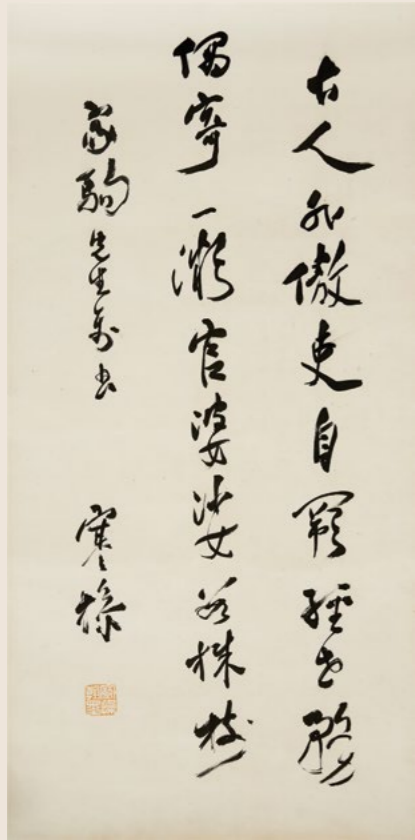 古人非傲吏自闕經世務
偶寄一微官婆娑數株樹
家駒先生屬書
寒操